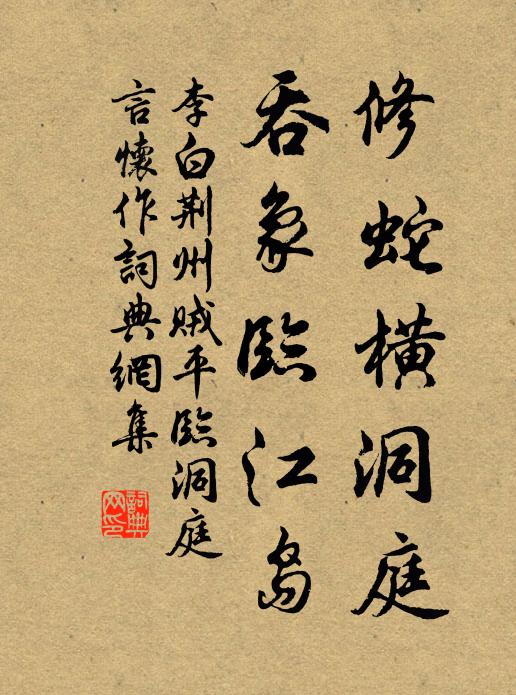 修蛇橫洞庭
吞象臨江島
李白荆州賊平臨洞庭
言懷作詞典網集
詞典
网印